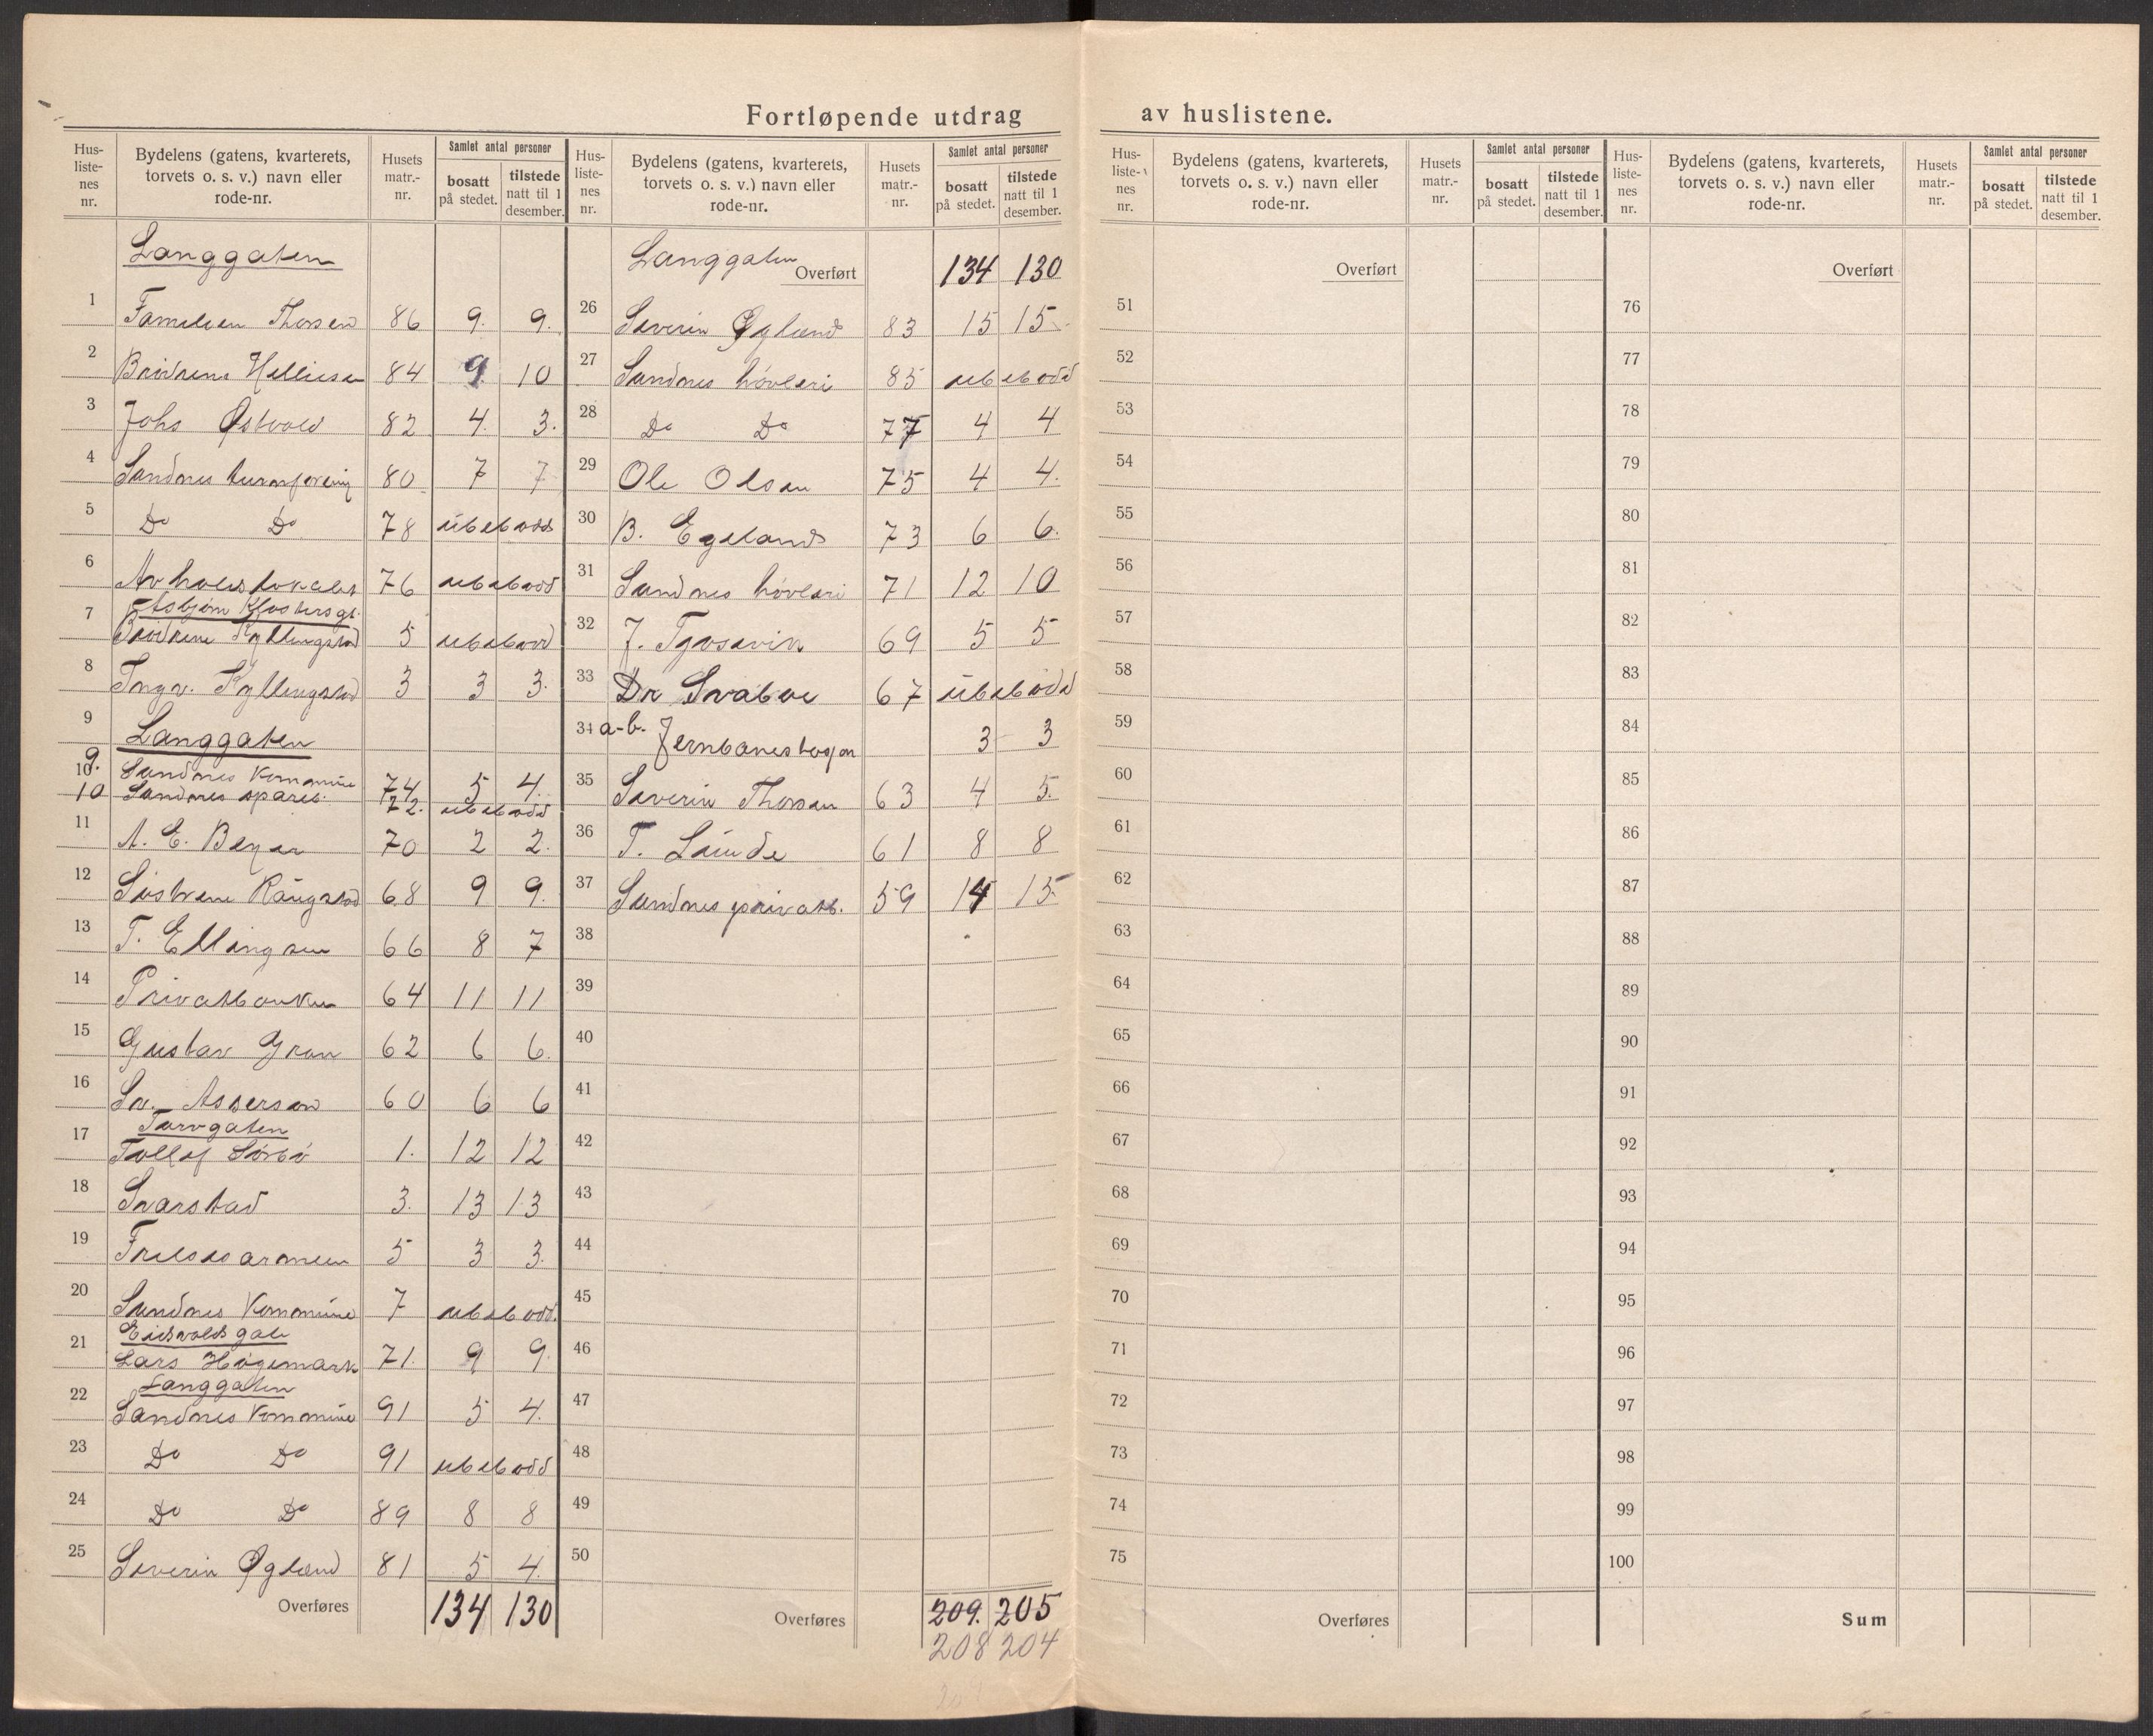 Fortløpende utdrag av huslistene.
Hus-listenes nr. Bydelens (gatens, kvarterets, torvets o. s. v.) navn eller rode-nr. Husets matr.-nr. Samlet antal personer bosatt på stedet. tilstede natt til 1 desember.
Langgaten
1 Familien Thorsen 86 9. 9.
2 Brödrene Helliesen 84 9 10
3 Johs Østvold 82 4. 3.
4 Sandnes turnforening 80 7 7
5 Do Do 78 ubebodd
6 Avholdslokalet 76 ubebodd
Asbjörn Klostersgt.
7 Brödrene Kyllingstad 5 ubebodd
8 Ingv. Kyllingstad 3 3 3.
9 Langgaten
9. Sandnes Kommune 74 5 4.
10 Sandnes spareb. 72. ubebodd
11 A. E. Beyer 70 2 2.
12 Söstrene Raugstad 68 9 9.
13 T. Ellingsen 66 8 7
14 Privatbanken 64 11 11
15 Gustav Gran 62 6 6.
16 Sv. Asserson 60 6 6
Torvgaten
17 Tollef Sörbö 1. 12 12
18 Svarstad 3. 13 13
19 Frelsesarmeen 5 3 3.
20 Sandnes Kommune 7 ubebodd.
Eidsvolds gate
21 Lars Hogemark 71. 9 9.
Langgaten
22 Sandnes Kommune 91 5 4.
23 Do Do 91 ubebodd
24 Do Do 89 8 8
25 Severin Øglænd 81 5 4.
Overføres 134 130
Hus-listenes nr. Bydelens (gatens, kvarterets, torvets o. s. v.) navn eller rode-nr. Husets matr.-nr. Samlet antal personer bosatt på stedet. tilstede natt til 1 desember.
Langgaten Overført 134 130
26 Severin Øglænd 83 15 15
27 Sandnes hövleri 85 ubebodd
28 Do Do 77 4 4
29 Ole Olsen 75 4 4.
30 B. Egeland 73 6 6.
31 Sandnes hövleri 71 12 10
32 J. 69 5 5
33 Dr Svaboe 67 ubebodd
34 a-b. Jernbanestasjon 3 3
35 Severin Thorsen 63 4 5.
36 T. Lunde 61 8 8
37 Sandnes privatb. 59 14 15
38
39
40
41
42
43
44
45
46
47
48
49
50
Overføres 209. 205
208 204
Hus-listenes nr. Bydelens (gatens, kvarterets, torvets o. s. v.) navn eller rode-nr. Husets matr.-nr. Samlet antal personer bosatt på stedet. tilstede natt til 1 desember.
Overført
51
52
53
54
55
56
57
58
59
60
61
62
63
64
65
66
67
68
69
70
71
72
73
74
75
Overføres
Hus-listenes nr. Bydelens (gatens, kvarterets, torvets o. s. v.) navn eller rode-nr. Husets matr.-nr. Samlet antal personer bosatt på stedet. tilstede natt til 1 desember.
Overført
76
77
78
79
80
81
82
83
84
85
86
87
88
89
90
91
92
93
94
95
96
97
98
99
100
Sum